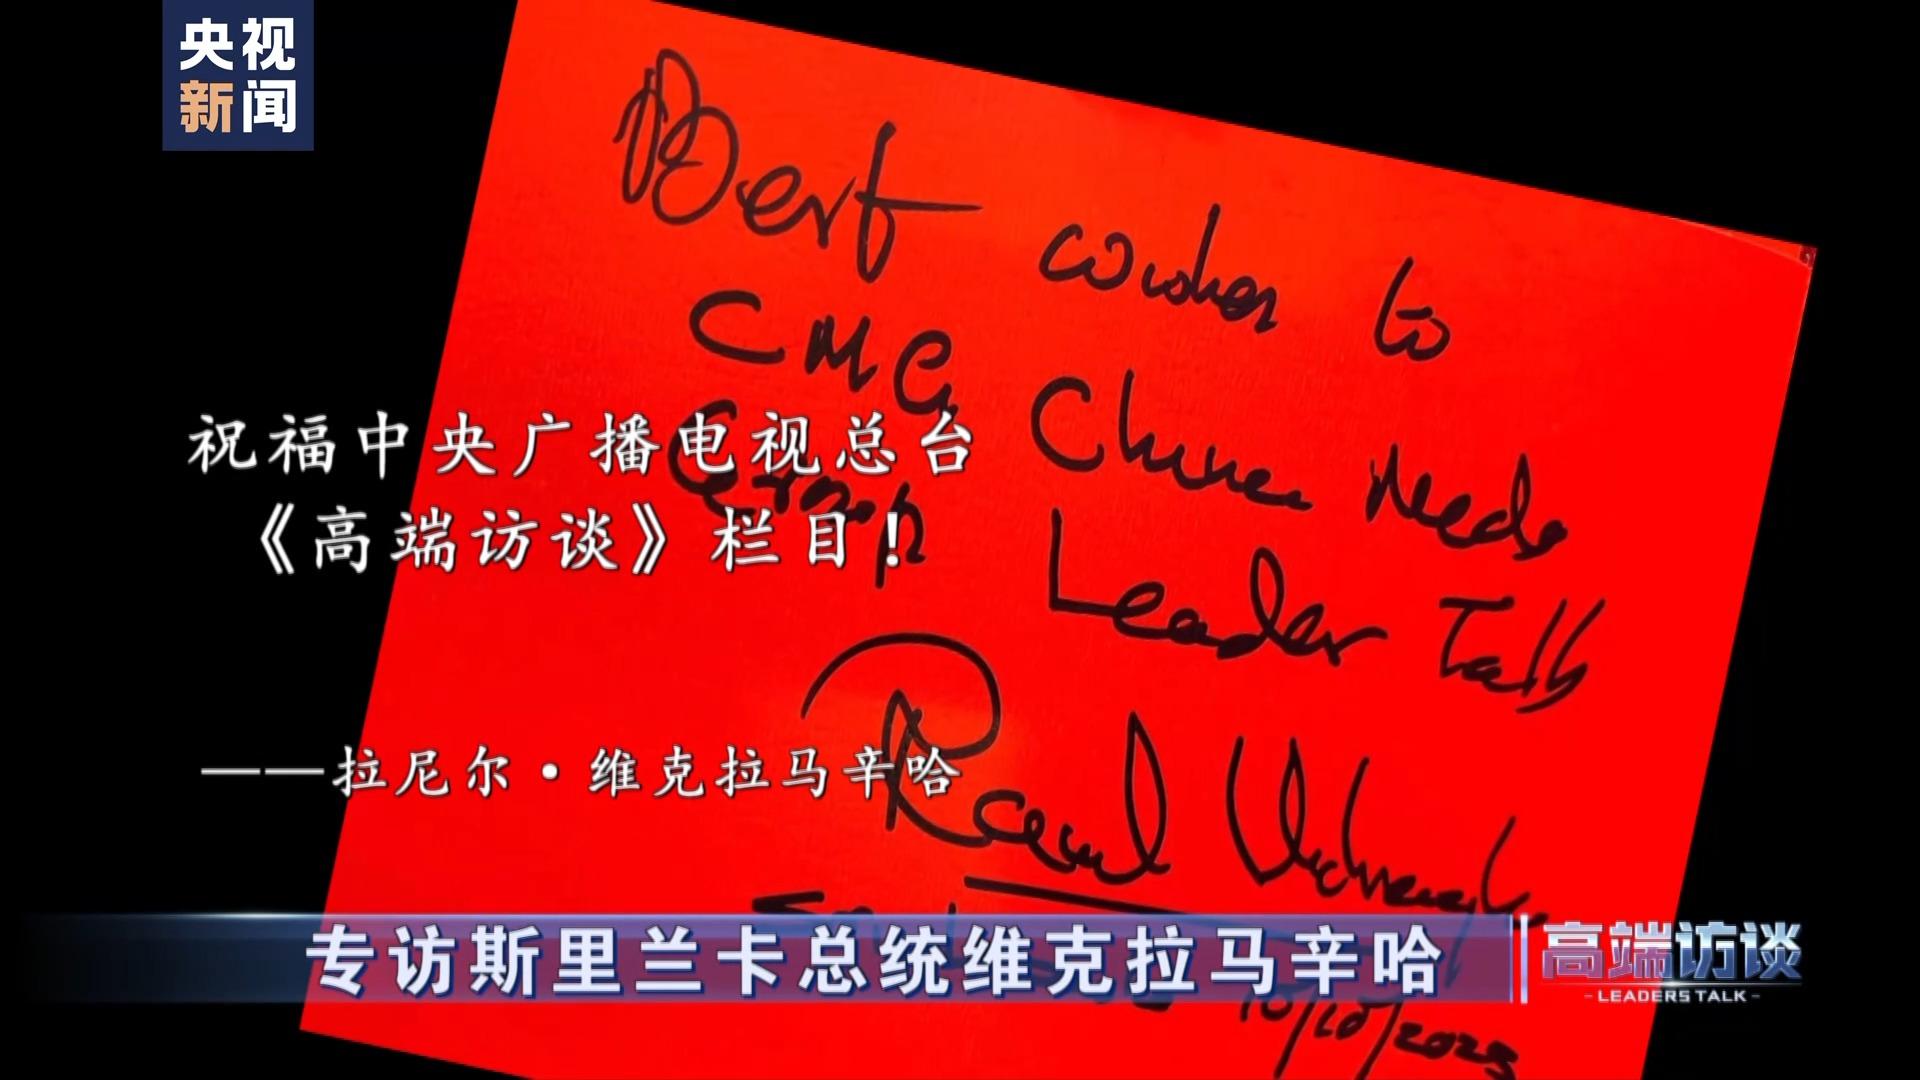 央视
新闻
Best wishes to
CMG Chinese Media
Group Leader Talk
祝福中央广播电视总台
《高端访谈》栏目！
——拉尼尔·维克拉马辛哈
专访斯里兰卡总统维克拉马辛哈
高端访谈
-LEADERS TALK-
10/10/2023